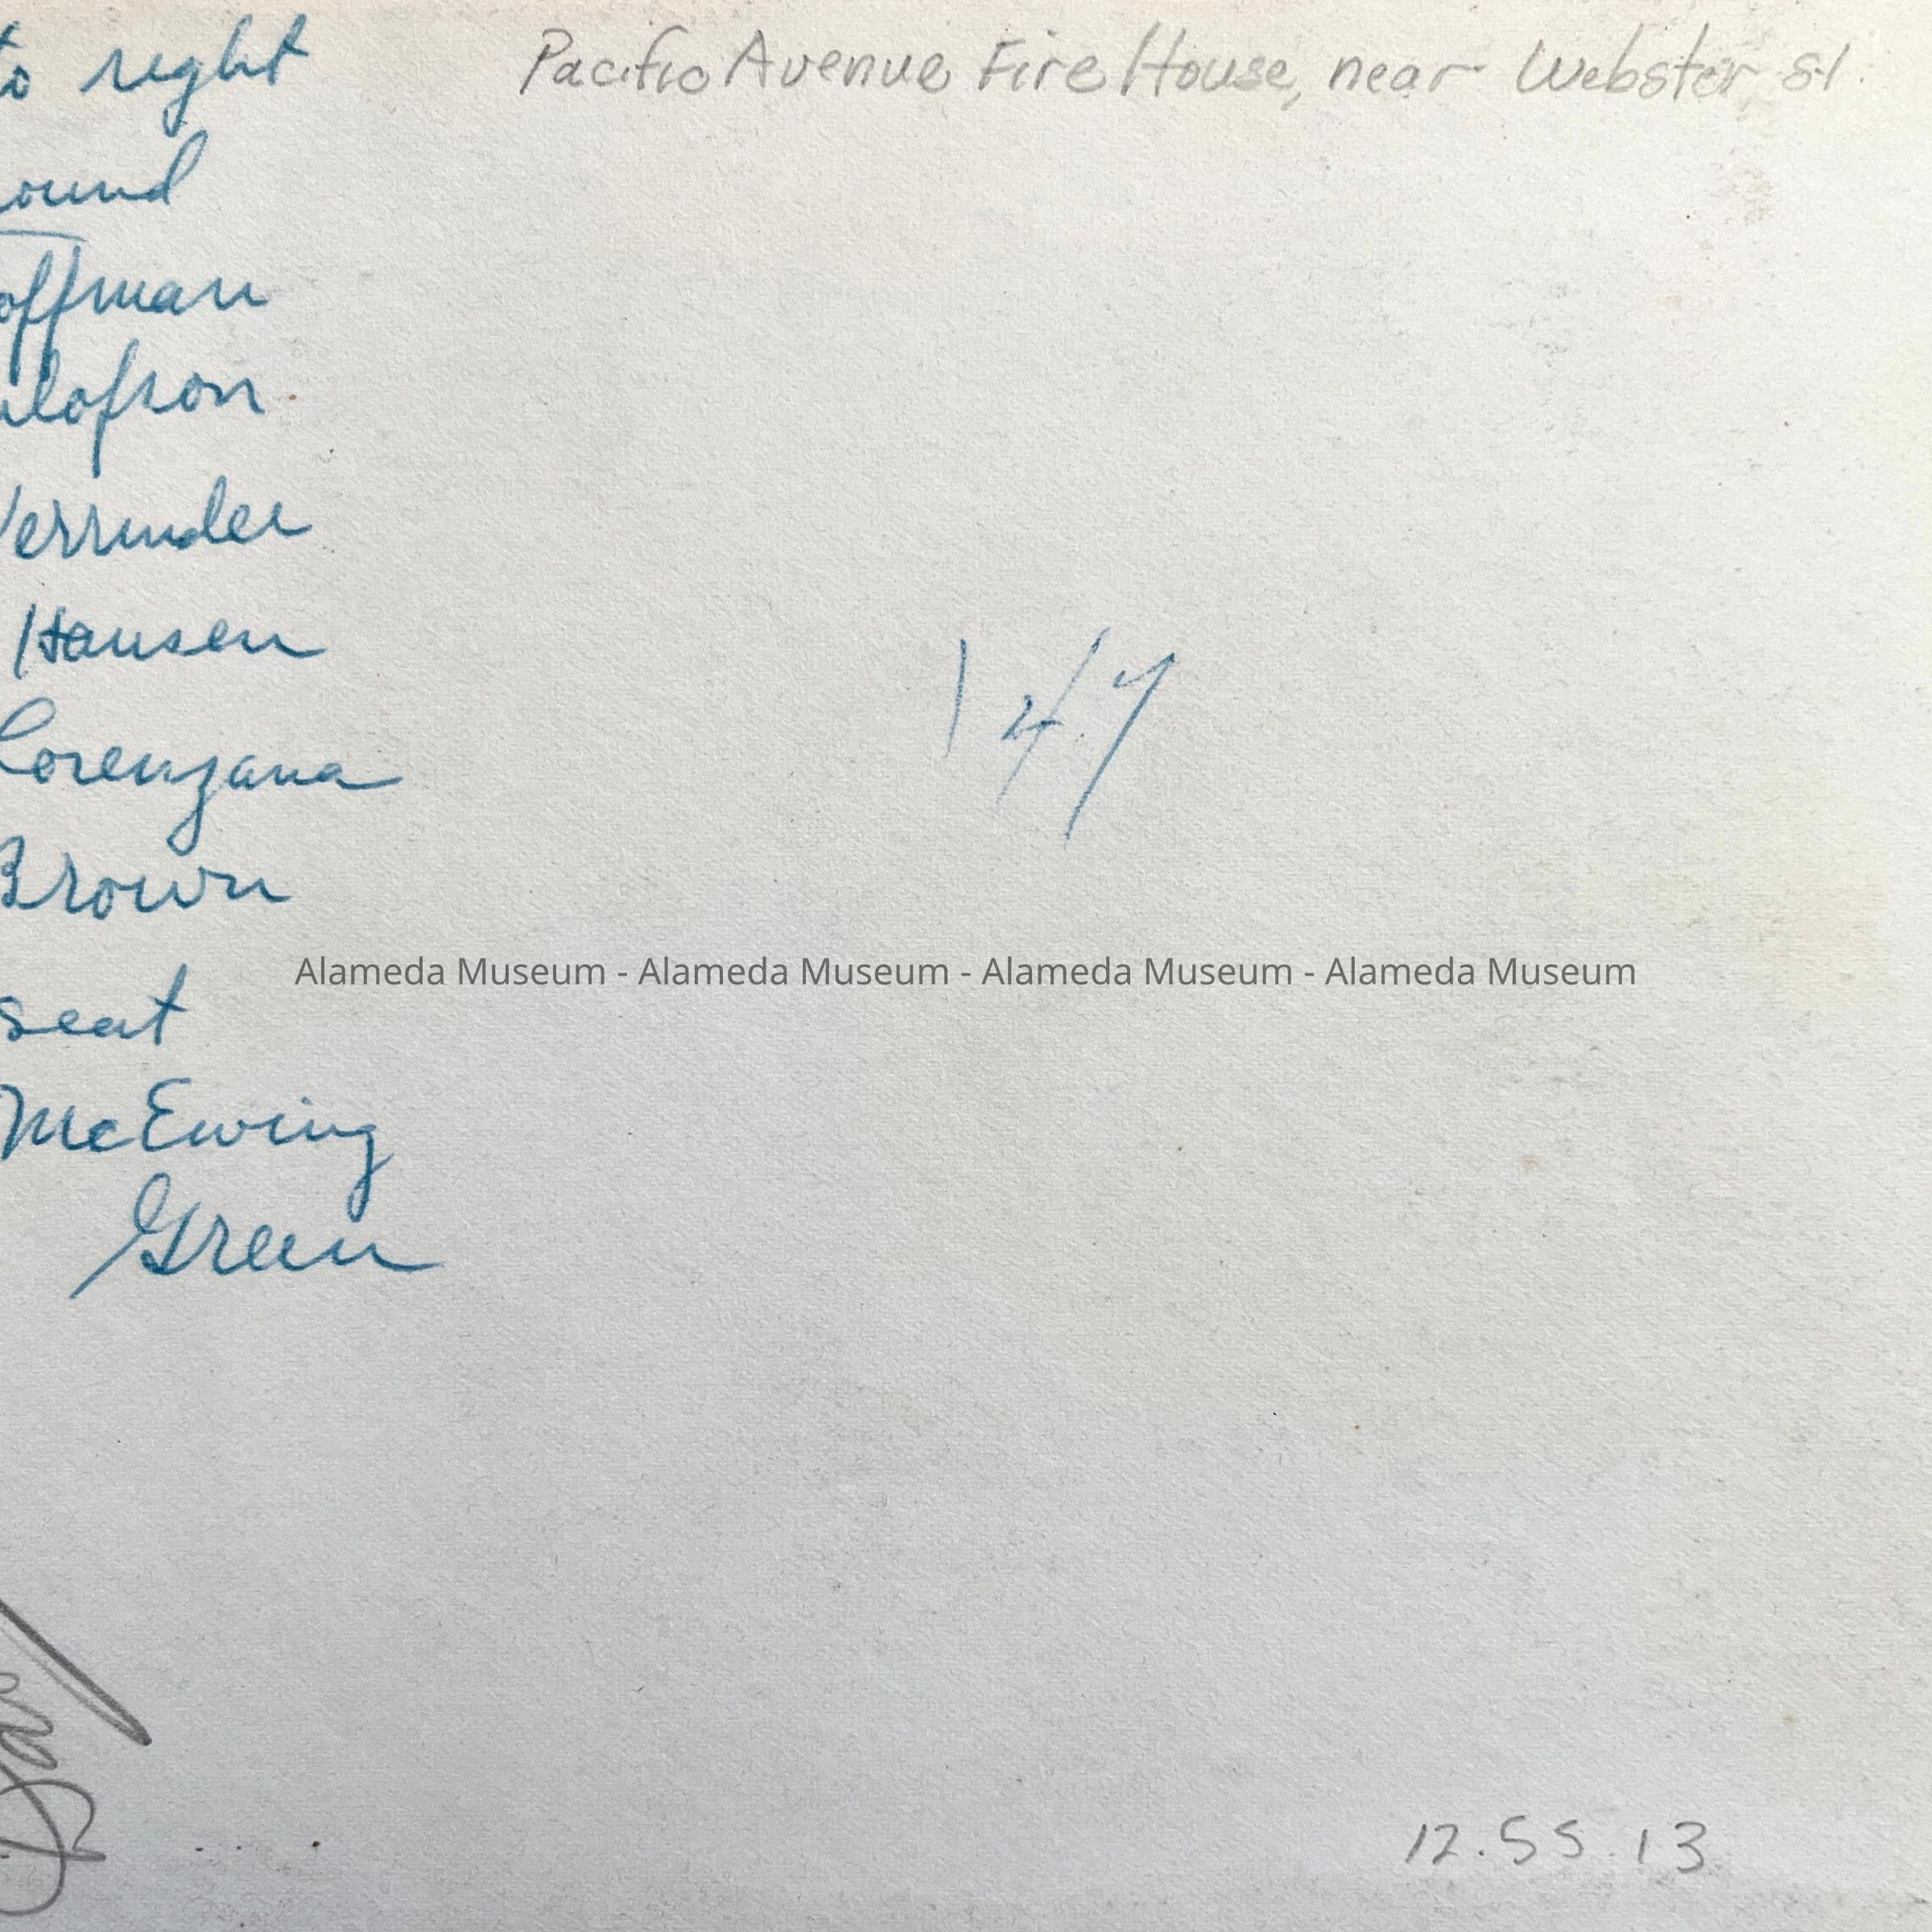 to right
ound
offman
ulofson
Verrinder
Hansen
Lorenzana
Brown
seat
McEwing
Green
Pacific Avenue Fire House, near Webster St.
147
Alameda Museum - Alameda Museum - Alameda Museum - Alameda Museum
12.55.13